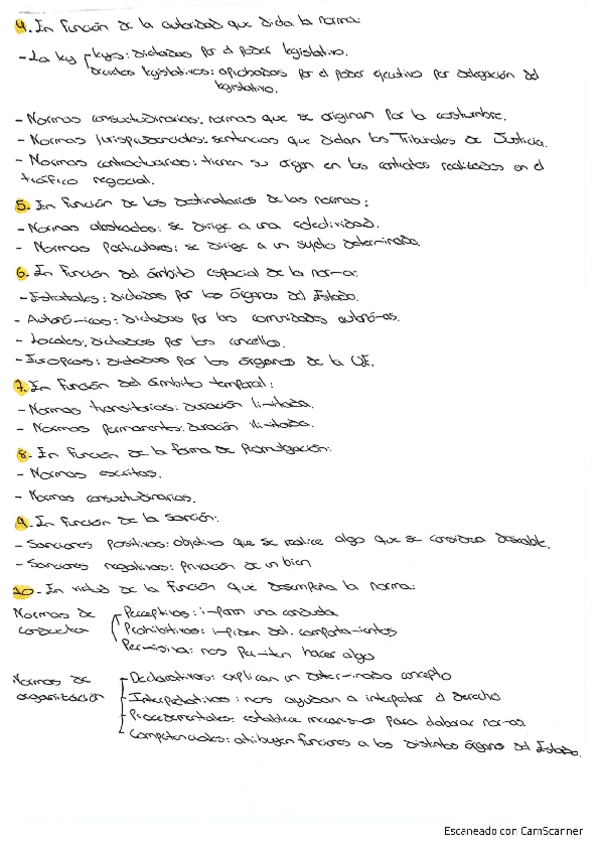 4. En función de la autoridad que dicta la norma:
- La ley leyes: dictadas por el poder legislativo.
decretos legislativos: aprobados por el poder ejecutivo por delegación del
legislativo.
- Normas consuetudinarias: normas que se originan por la costumbre.
- Normas jurisprudenciales: sentencias que dictan los Tribunales de Justicia.
- Normas contractuarias: tienen su origen en los contratos realizados en el
tráfico negocial.
5. En función de los destinatarios de las normas:
- Normas abstractas: se dirige a una colectividad.
- Normas particulares: se dirige a un sujeto determinado.
6. En función del ámbito espacial de la norma:
- Estatales: dictadas por los órganos del Estado.
- Autonómicas: dictadas por las comunidades autónomas.
- Locales: dictadas por los concellos.
- Europeas: dictadas por los órganos de la UE.
7. En función del ámbito temporal:
- Normas transitorias: duración limitada.
- Normas permanentes: duración ilimitada.
8. En función de la forma de promulgación:
- Normas escritas.
- Normas consuetudinarias.
9. En función de la sanción:
- Sanciones positivas: objetivo que se realice algo que se considera deseable.
- Sanciones negativas: privación de un bien
10. En virtud de la función que desempeña la norma:
Normas de conducta
Perceptivas: imponen una conducta
Prohibitivas: impiden det. comportamientos
Permisiva: nos permiten hacer algo
Normas de organización
Declarativas: explican un determinado concepto
Interpretativas: nos ayudan a interpretar el derecho
Procedimentales: establece mecanismos para elaborar normas
Competenciales: atribuyen funciones a los distintos órganos del Estado.
Escaneado con CamScanner